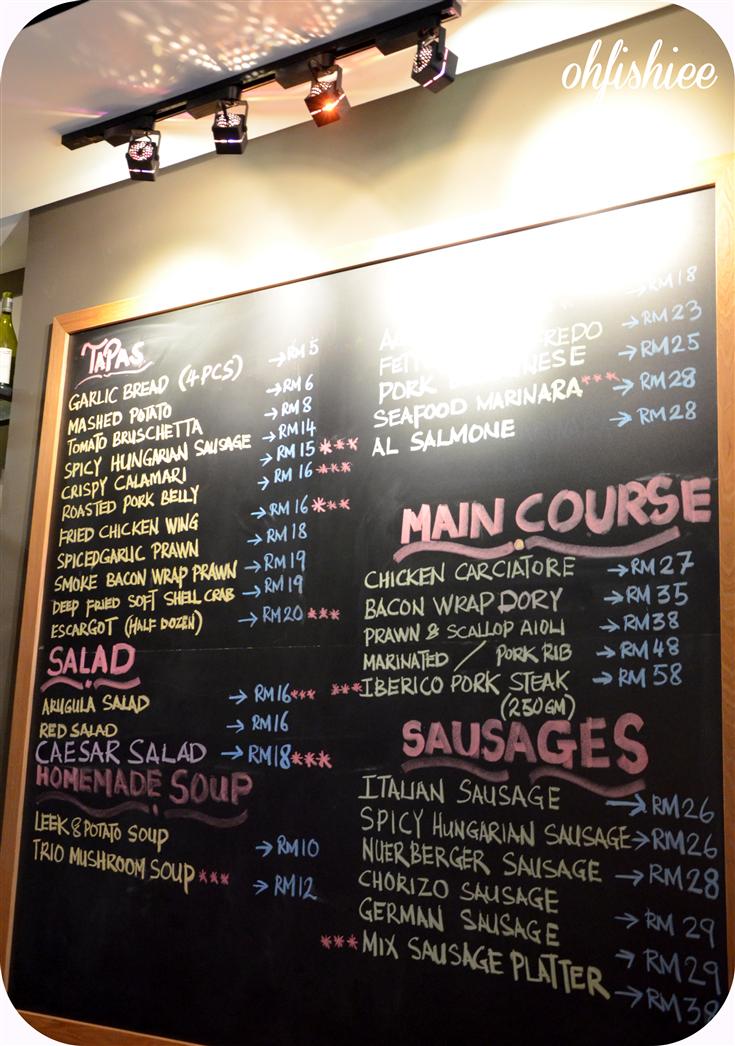 ohfishiee
TAPAS
GARLIC BREAD (4PCS) → RM5
MASHED POTATO → RM6
TOMATO BRUSCHETTA → RM8
SPICY HUNGARIAN SAUSAGE → RM14
CRISPY CALAMARI → RM15 ***
ROASTED PORK BELLY → RM16 ***
FRIED CHICKEN WING → RM16 ***
SPICEDGARLIC PRAWN → RM18
SMOKE BACON WRAP PRAWN → RM19
DEEP FRIED SOFT SHELL CRAB → RM19
ESCARGOT (HALF DOZEN) → RM20 ***
SALAD
ARUGULA SALAD → RM16 ***
RED SALAD → RM16
CAESAR SALAD → RM18 ***
HOMEMADE SOUP
LEEK & POTATO SOUP → RM10
TRIO MUSHROOM SOUP *** → RM12
→ RM18
→ RM23
PORK → RM25
SEAFOOD MARINARA *** → RM28
AL SALMONE → RM28
MAIN COURSE
CHICKEN CARCIATORE → RM27
BACON WRAP DORY → RM35
PRAWN & SCALLOP AIOLI → RM38
MARINATED / PORK RIB → RM48
*** IBERICO PORK STEAK → RM58
(250GM)
SAUSAGES
ITALIAN SAUSAGE → RM26
SPICY HUNGARIAN SAUSAGE → RM26
NUERBERGER SAUSAGE → RM28
CHORIZO SAUSAGE → RM29
GERMAN SAUSAGE → RM29
*** MIX SAUSAGE PLATTER → RM38